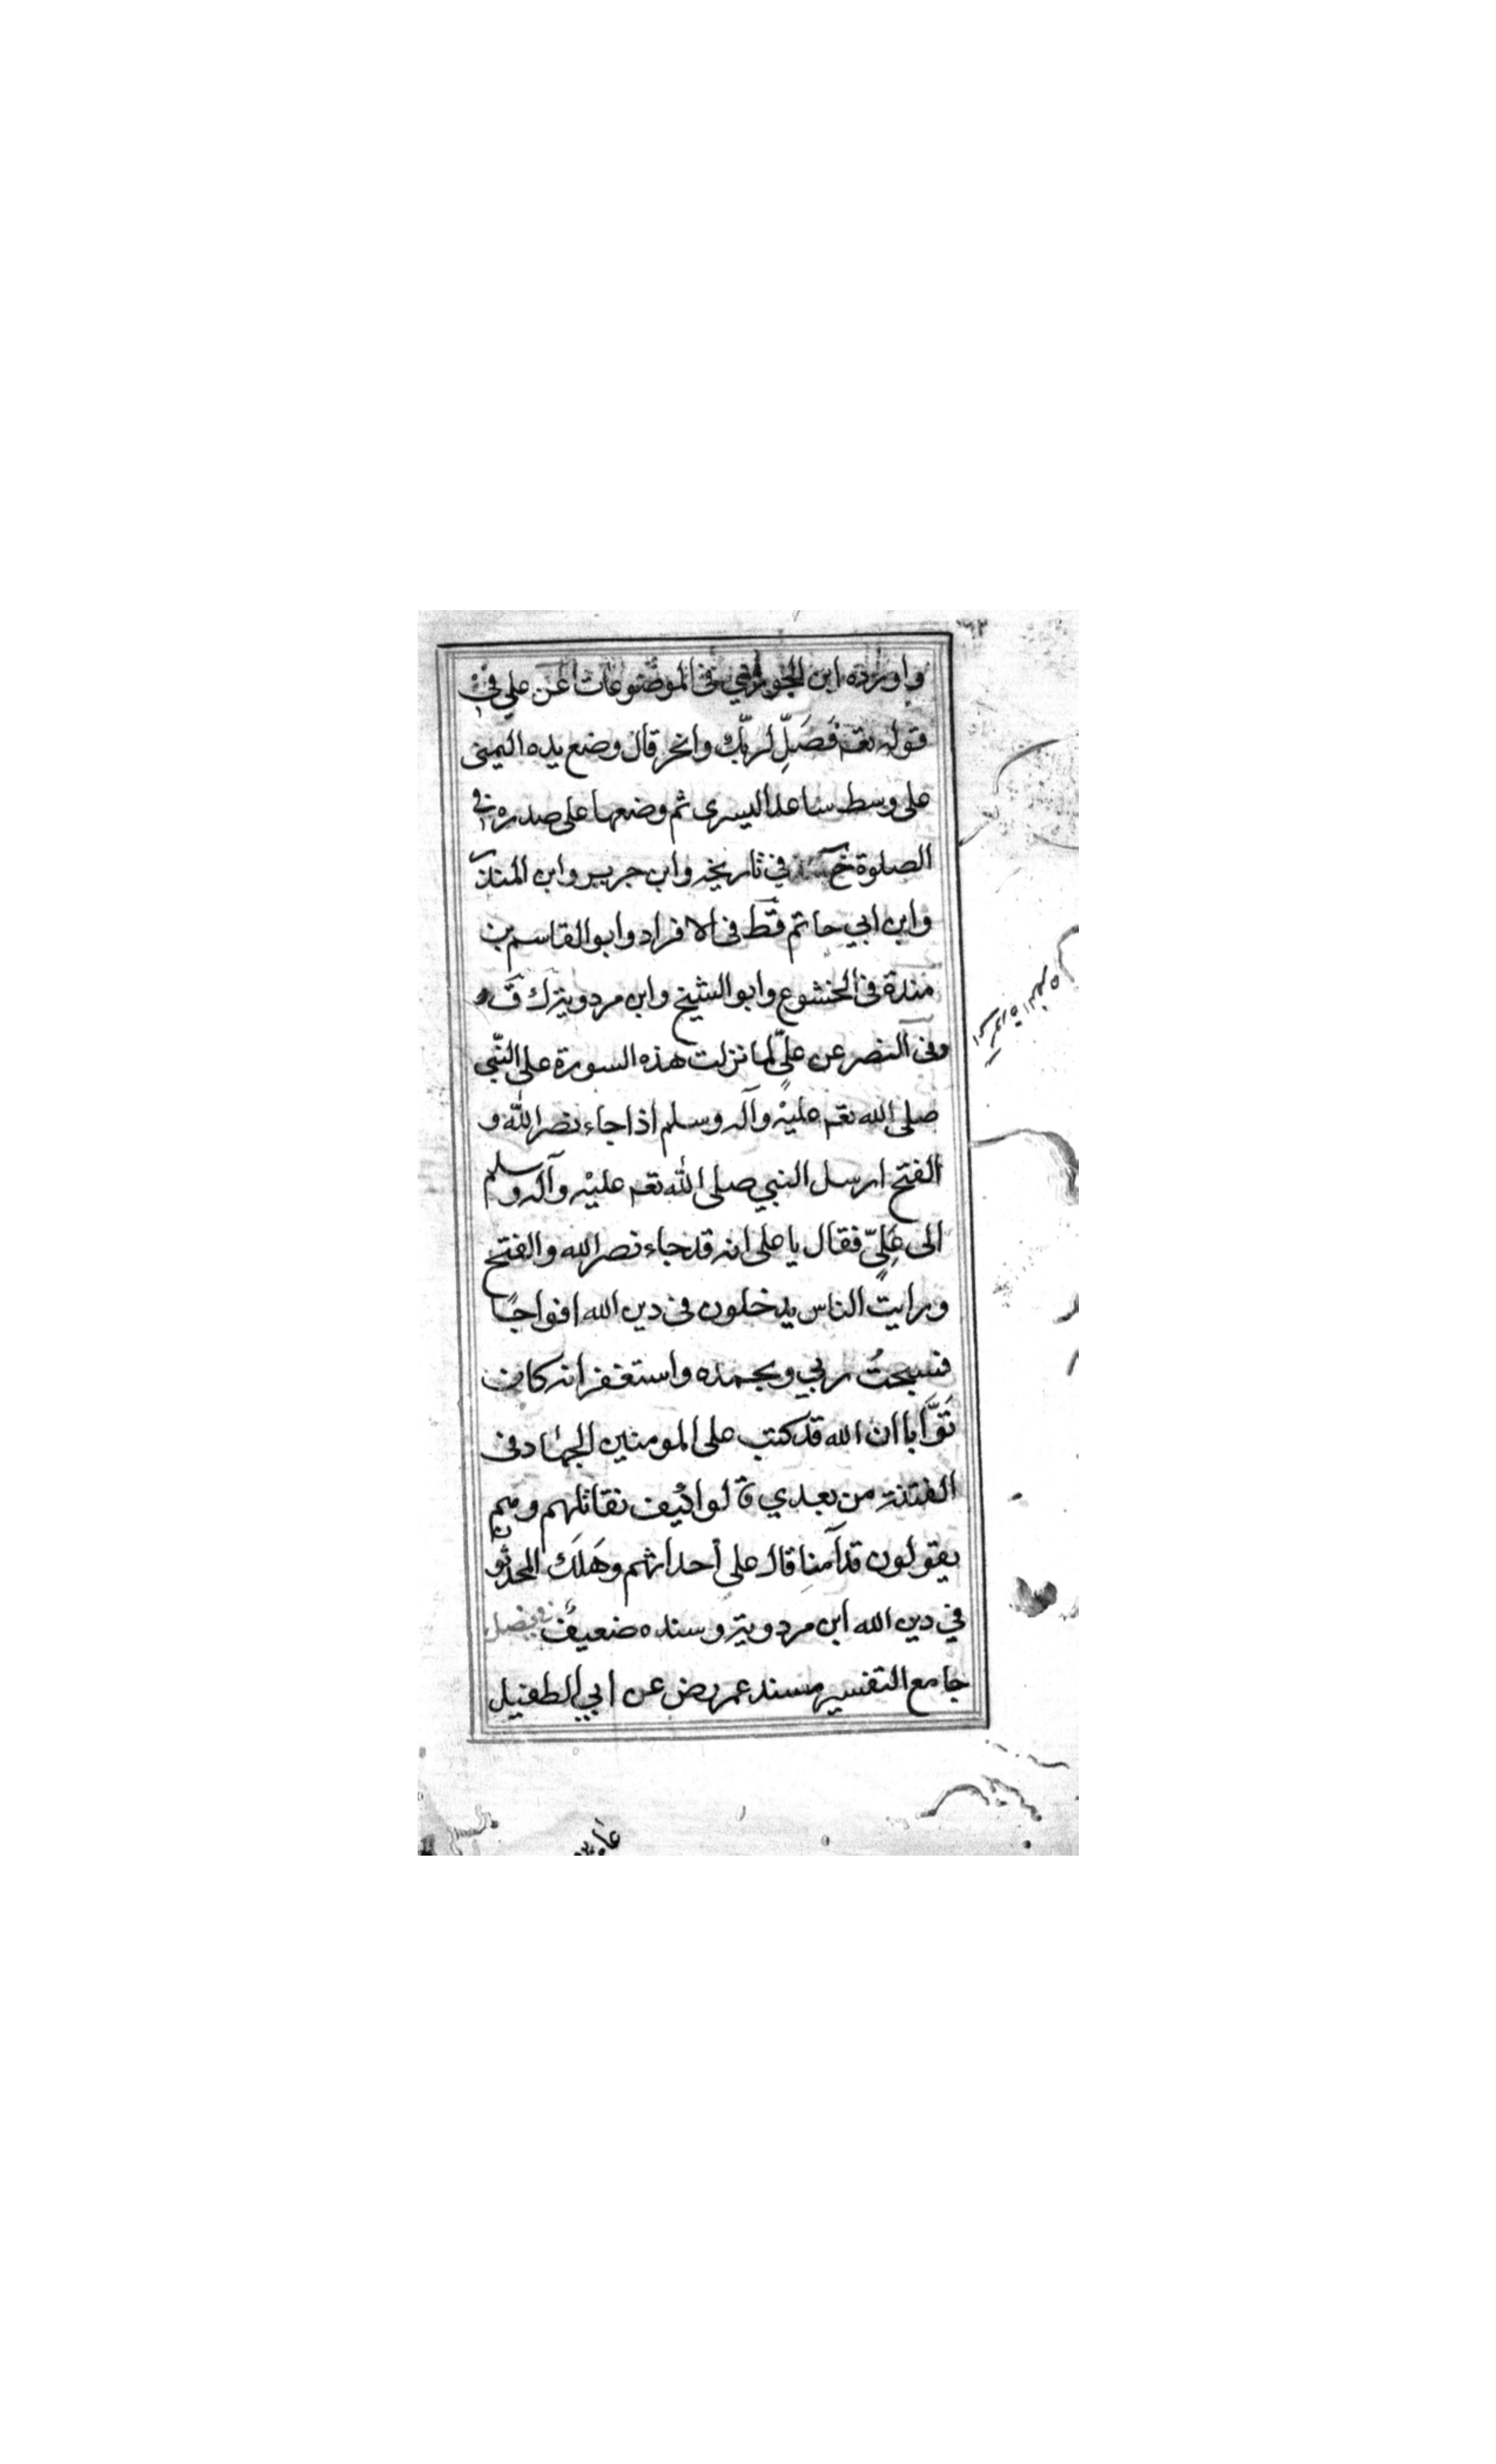 واورده ابن الجوزي في الموضوعات عن علي في
قوله تعم فَصَلِّ لربّك وانحر قال وضع يده اليمنى
على وسط ساعد اليسرى ثم وضعها على صدره في
الصلوة خ في تاريخه وابن جرير وابن المنذر
وابن ابي حاتم قط في الافراد وابو القاسم بن
مندة في الخشوع وابو الشيخ وابن مردويه ك ق
وفي النصر عن عليٍّ لما نزلت هذه السورة على النّبي
صلى الله تعم عليه وآله وسلم اذا جاء نصر الله و
الفتح ارسل النبي صلى الله تعم عليه وآله وسلم
الى عَلِيٍّ فقال يا على انه قد جاء نصر الله والفتح
ورايت الناس يدخلون في دين الله افواجًا
فسبحتُ ربي وبحمده واستغفر انه كان
تَوَّابا ان الله قد كتب على المومنين الجهاد في
الفتنة من بعدي قالوا كيف نقاتلهم وهم
يقولون قد آمنا قال على أحداثهم وهَلَك المحدثون
في دين الله ابن مردويه وسنده ضعيف فصل
جامع التفسير مسند عمر رض عن ابي الطفيل